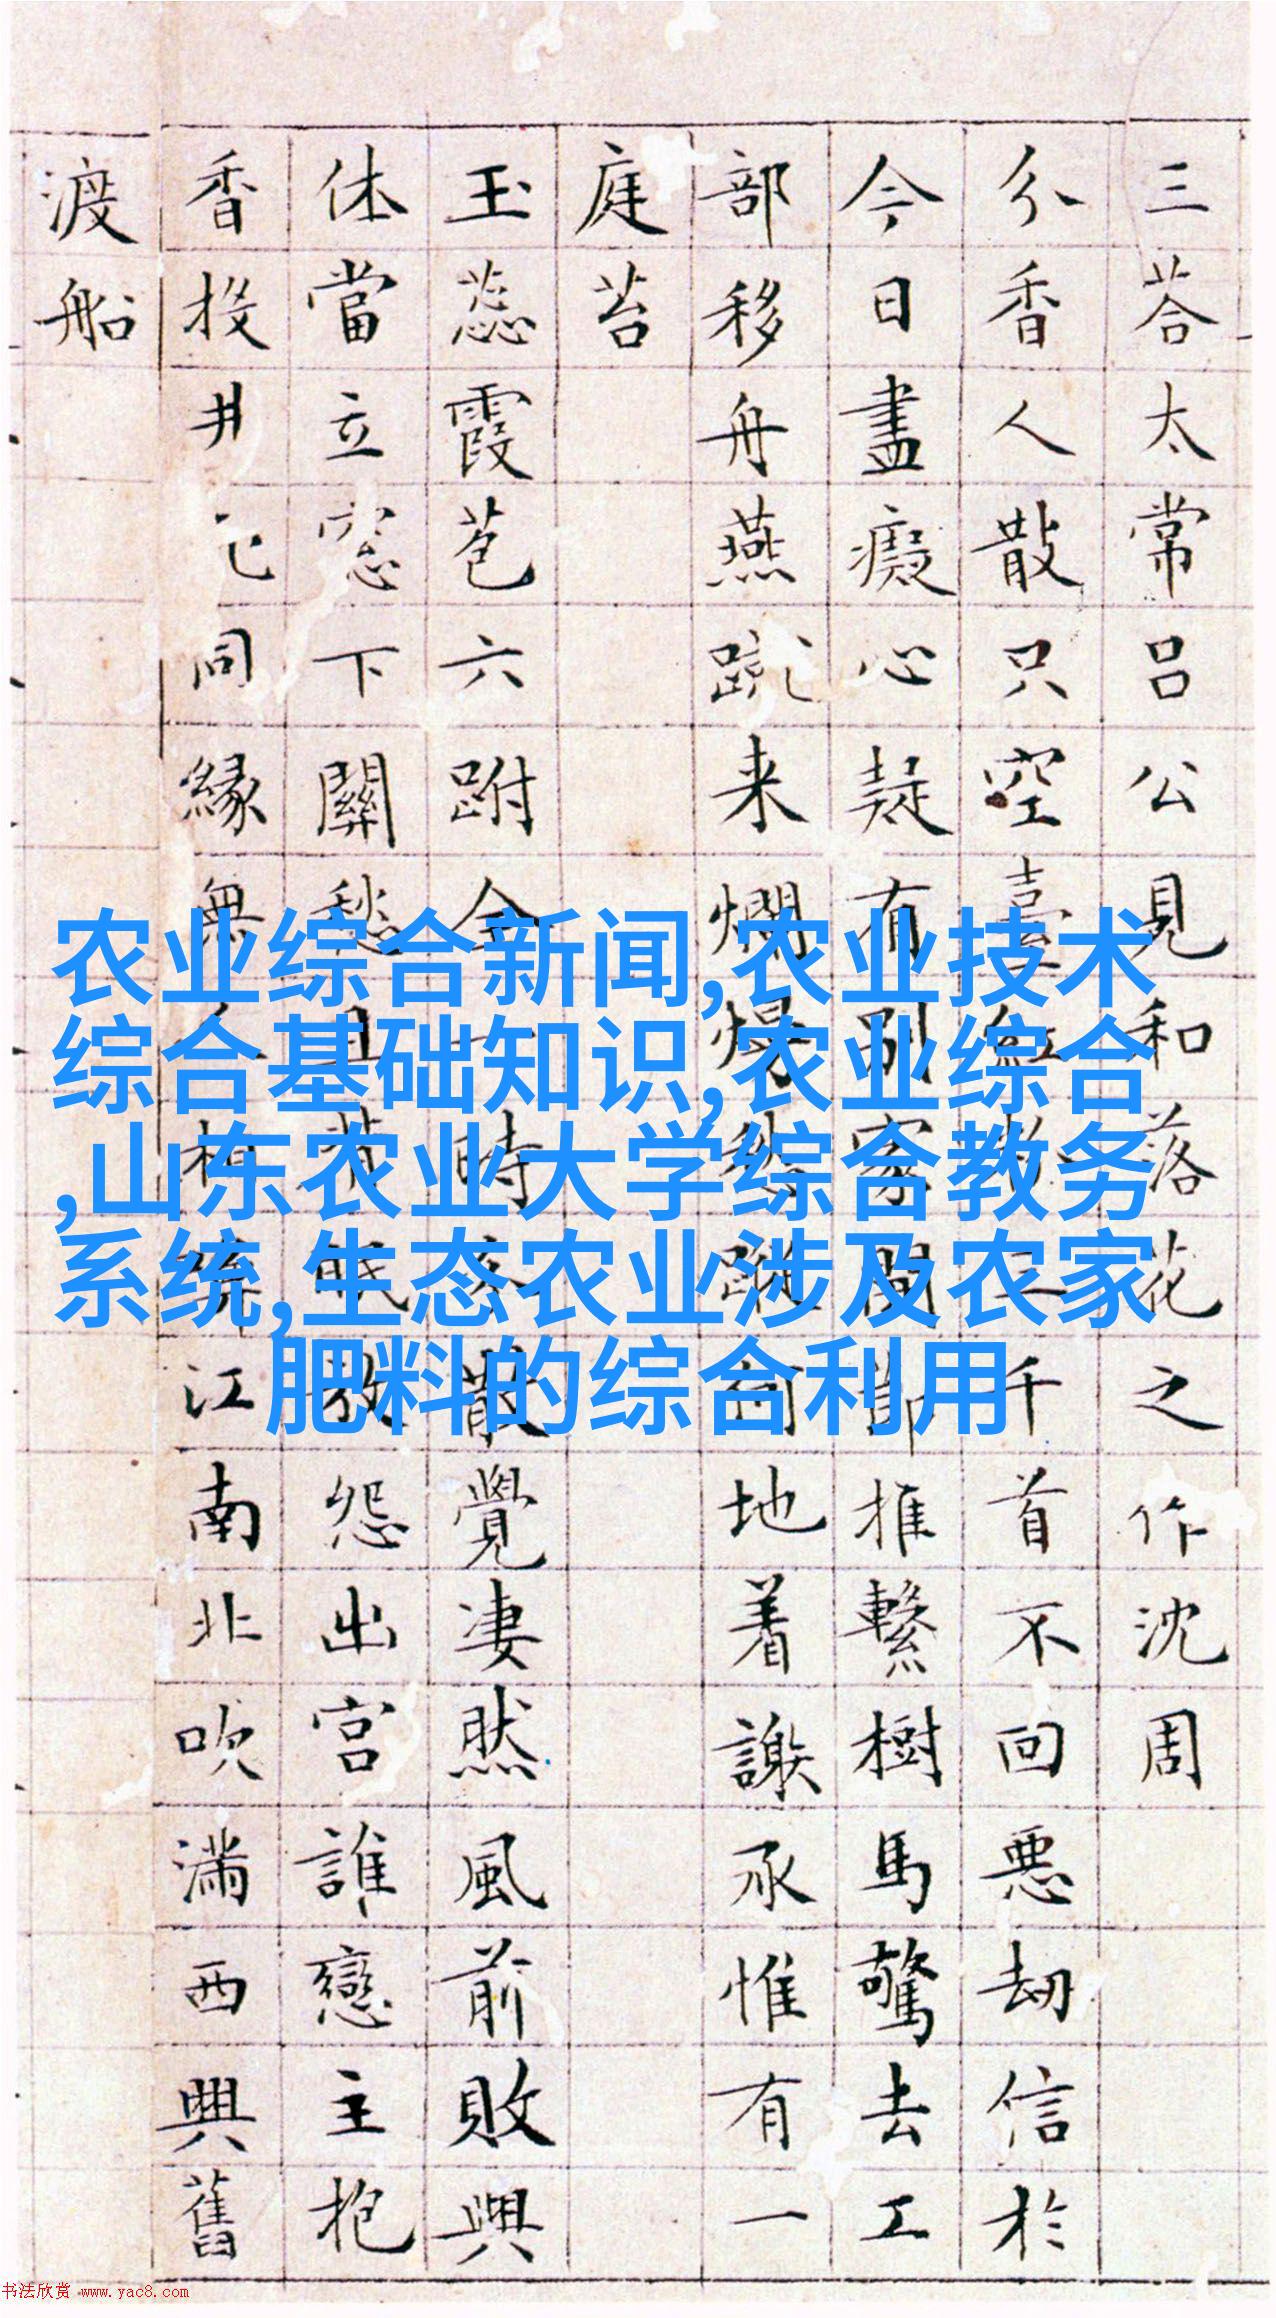 三荅太常吕公見和落花之作沈周
分香人散只空臺紅粉三千首不回惡劫信於
今日盡癡心疑有別家開節推繫樹馬驚去工
部移舟燕蹴来爛熳愁蹤何地着謝承惟有一
庭苔
玉蕊霞苞六跗全一時散覺凄然風前敗興
休當立窓下關愁且眠放怨出宫誰戀主抱
香投井同縁無人江南北吹滿西興舊
渡船
农业综合新闻,农业技术
综合基础知识,农业综合
,山东农业大学综合教务
系统,生态农业涉及农家
肥料的综合利用
书法欣赏 www.yac8.com